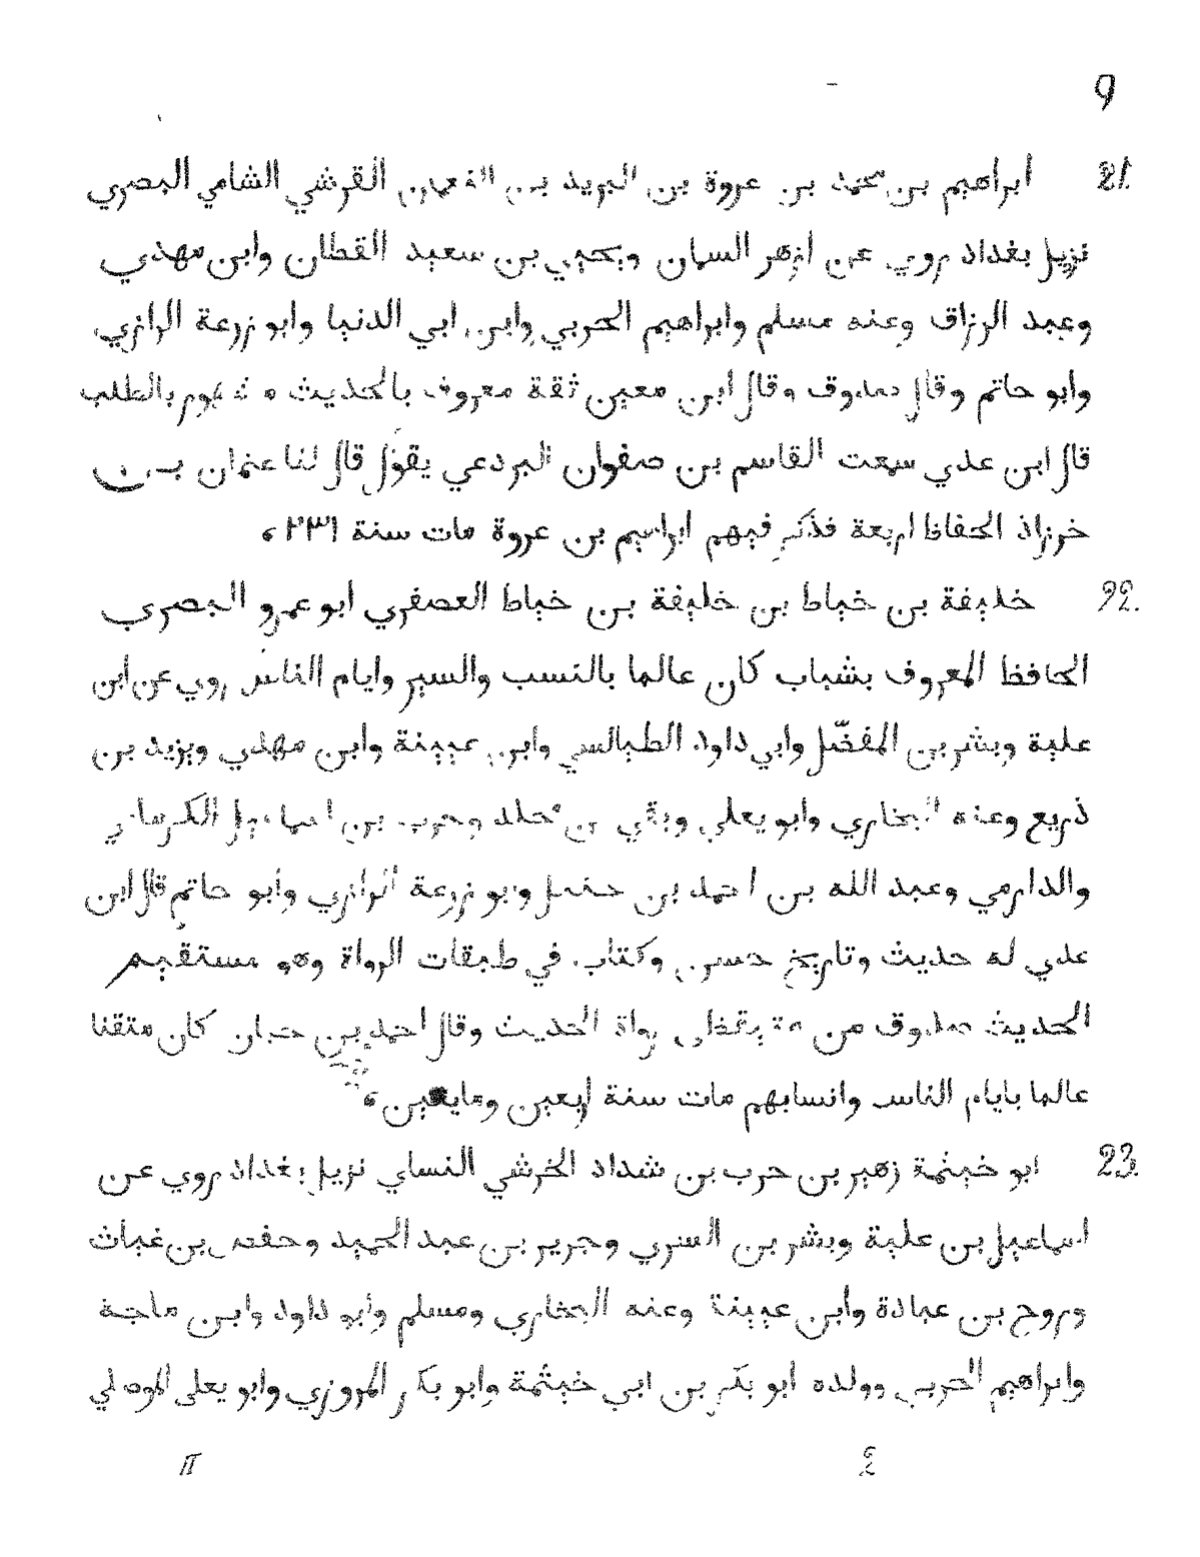 9
21. أبراهيم بن محمد بن عروة بن البريد بن النعمان القرشي الشامي البصري
نزيل بغداد روي عن ازهر السمان ويحيي بن سعيد القطان وابن مهدي
وعبد الرزاق وعنه مسلم وابراهيم الحربي وابن ابي الدنيا وابو زرعة الرازي
وابو حاتم وقال صدوق وقال ابن معين ثقة معروف بالحديث مشهور بالطلب
قال ابن عدي سمعت القاسم بن صفوان البردعي يقول قال لنا عثمان بن
خرزاذ الحفاظ اربعة فذكر فيهم ابراسيم بن عروة مات سنة ٢٣١
22. خليفة بن خياط بن خليفة بن خياط العصفري ابو عمرو البصري
الحافظ المعروف بشباب كان عالما بالنسب والسير وايام الناس روي عن ابن
علية وبشر بن المفضّل وابي داود الطيالسي وابن عيينة وابن مهدي ويزيد بن
ذريع وعنه البخاري وابو يعلي وبقي بن مخلد وحرب بن اسماعيل الكرماني
والدارمي وعبد الله بن احمد بن حنبل وابو زرعة الرازي وأبو حاتم قال ابن
عدي له حديث وتاريخ حسن وكتاب في طبقات الرواة وهو مستقيم
الحديث صدوق من متيقظي رواة الحديث وقال احمد بن حبان كان متقنا
عالما بايام الناس وانسابهم مات سنة أربعين ومايعين
23. ابو خيثمة زهير بن حرب بن شداد الخرشي النساي نزيل بغداد روي عن
اسماعيل بن علية وبشر بن السري وجرير بن عبد الحميد وحفص بن غياث
وروح بن عبادة وأبن عيينة وعنه البخاري ومسلم وأبو داود وابن ماجة
وابراهيم الحربي وولده ابو بكر بن ابي خيثمة وابو بكر المروزي وابو يعلى الموصلي
II 2